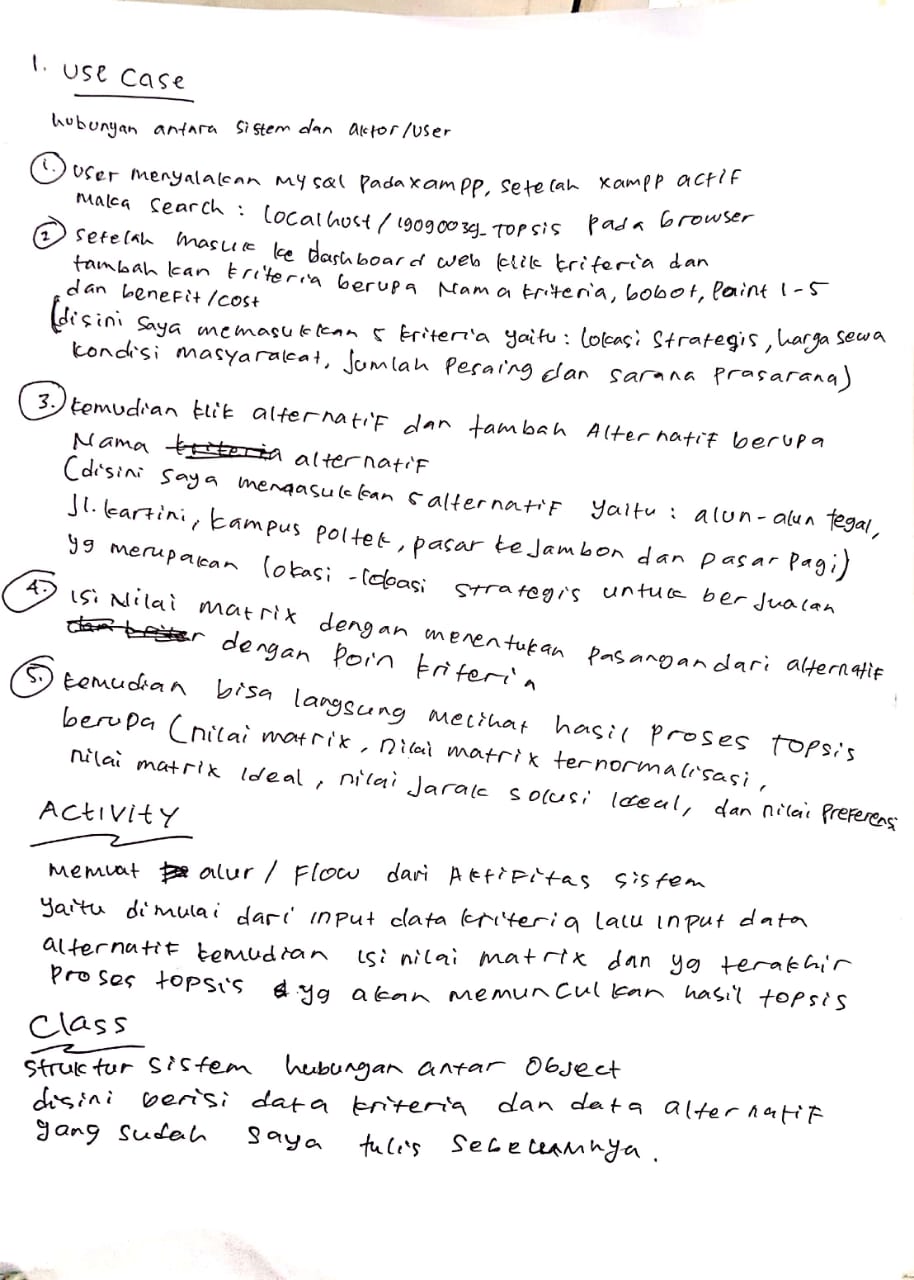 1. Use Case
hubungan antara sistem dan aktor/user
1. User menyalakan Mysql pada xampp, setelah xampp actif
maka search : localhost/19090039_TOPSIS pada browser
2 setelah masuk ke dashboard web klik kriteria dan
tambah kan kriteria berupa Nama kriteria, bobot, Point 1-5
dan benefit/cost
(disini saya memasukkan 5 kriteria yaitu : lokasi strategis, harga sewa
kondisi masyarakat, Jumlah Pesaing dan sarana prasarana)
3. Kemudian klik alternatif dan tambah Alternatif berupa
Nama alternatif
(disini saya memasukkan 5 alternatif yaitu : alun-alun tegal,
Jl. kartini, kampus poltek, pasar kejambon dan pasar Pagi)
yg merupakan lokasi-lokasi strategis untuk berjualan
4. isi Nilai matrix dengan menentukan pasangan dari alternatif
dengan Poin kriteria
5. Kemudian bisa langsung melihat hasil proses TOPSIS
berupa (nilai matrix, nilai matrix ternormalisasi,
nilai matrix Ideal, nilai Jarak solusi Ideal, dan nilai Preferensi
Activity
Memuat alur / Flow dari Aktifitas sistem
yaitu dimulai dari input data kriteria lalu input data
alternatif kemudian isi nilai matrix dan yg terakhir
Proses topsis yg akan memunculkan hasil topsis
Class
Struktur sistem hubungan antar Object
disini berisi data kriteria dan data alternatif
yang sudah saya tulis sebelumnya.